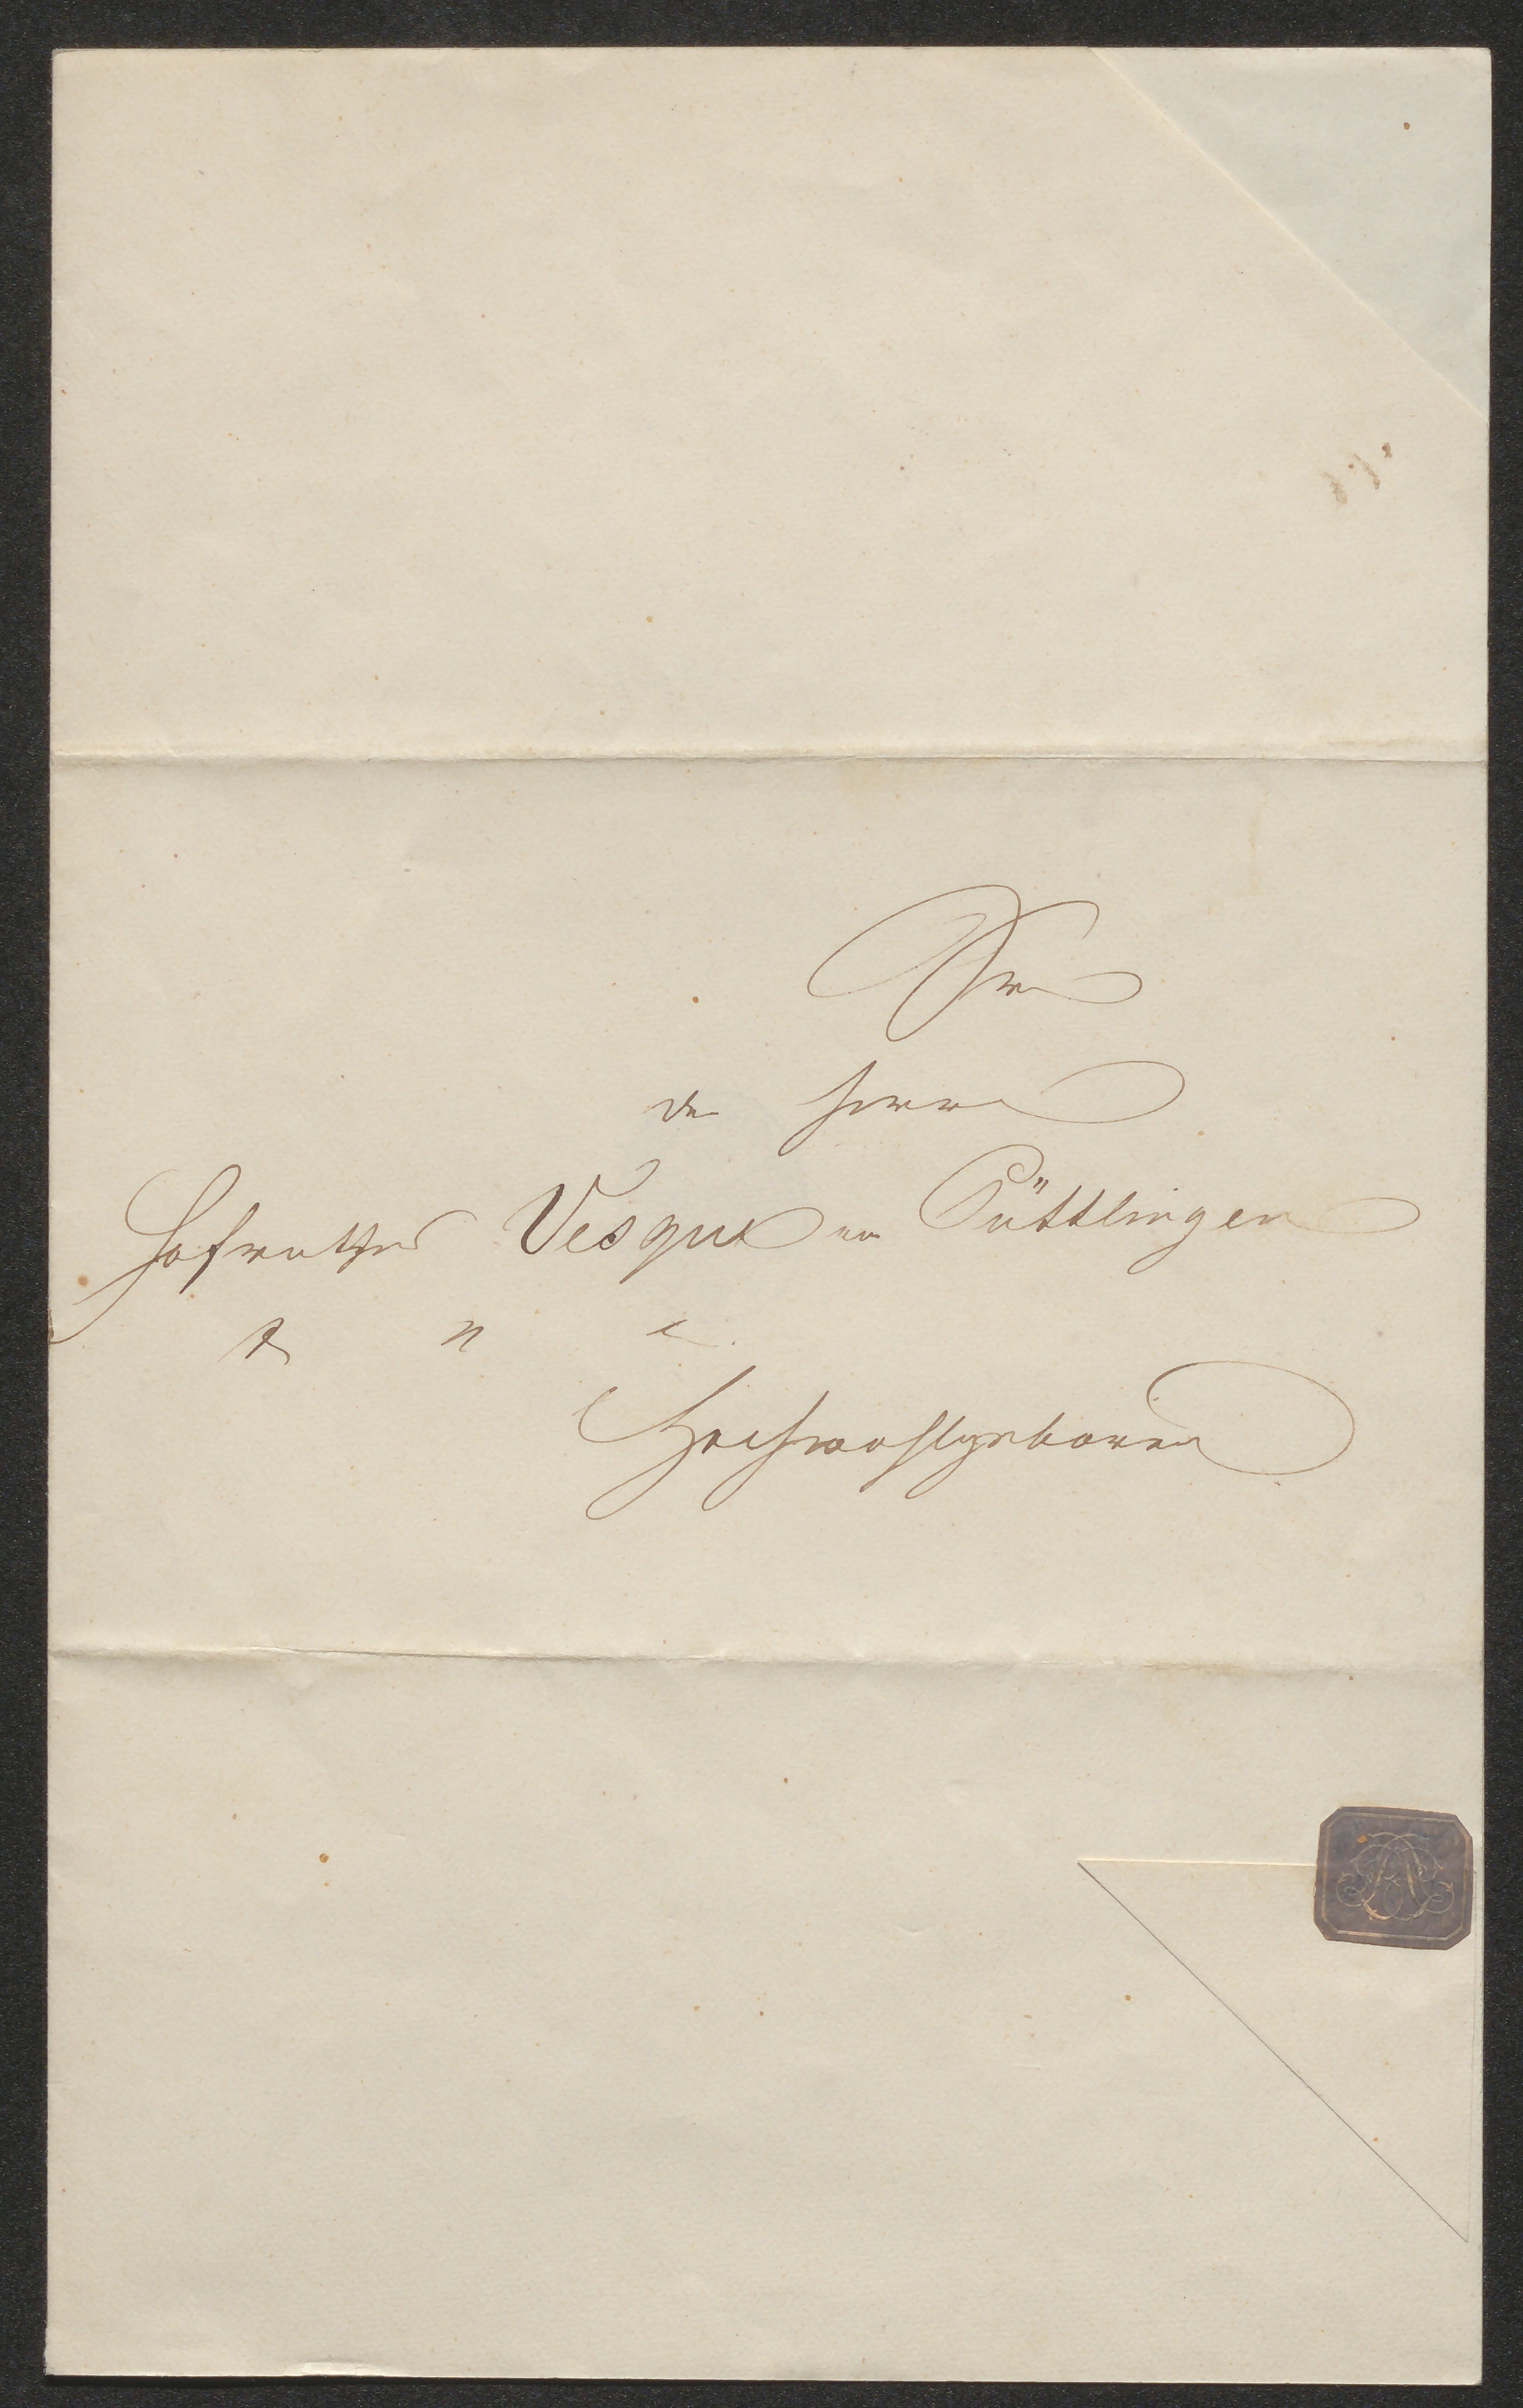 Sr
des Herrn
Hofrathes Vesque von Püttlingen
Hochwohlgeboren